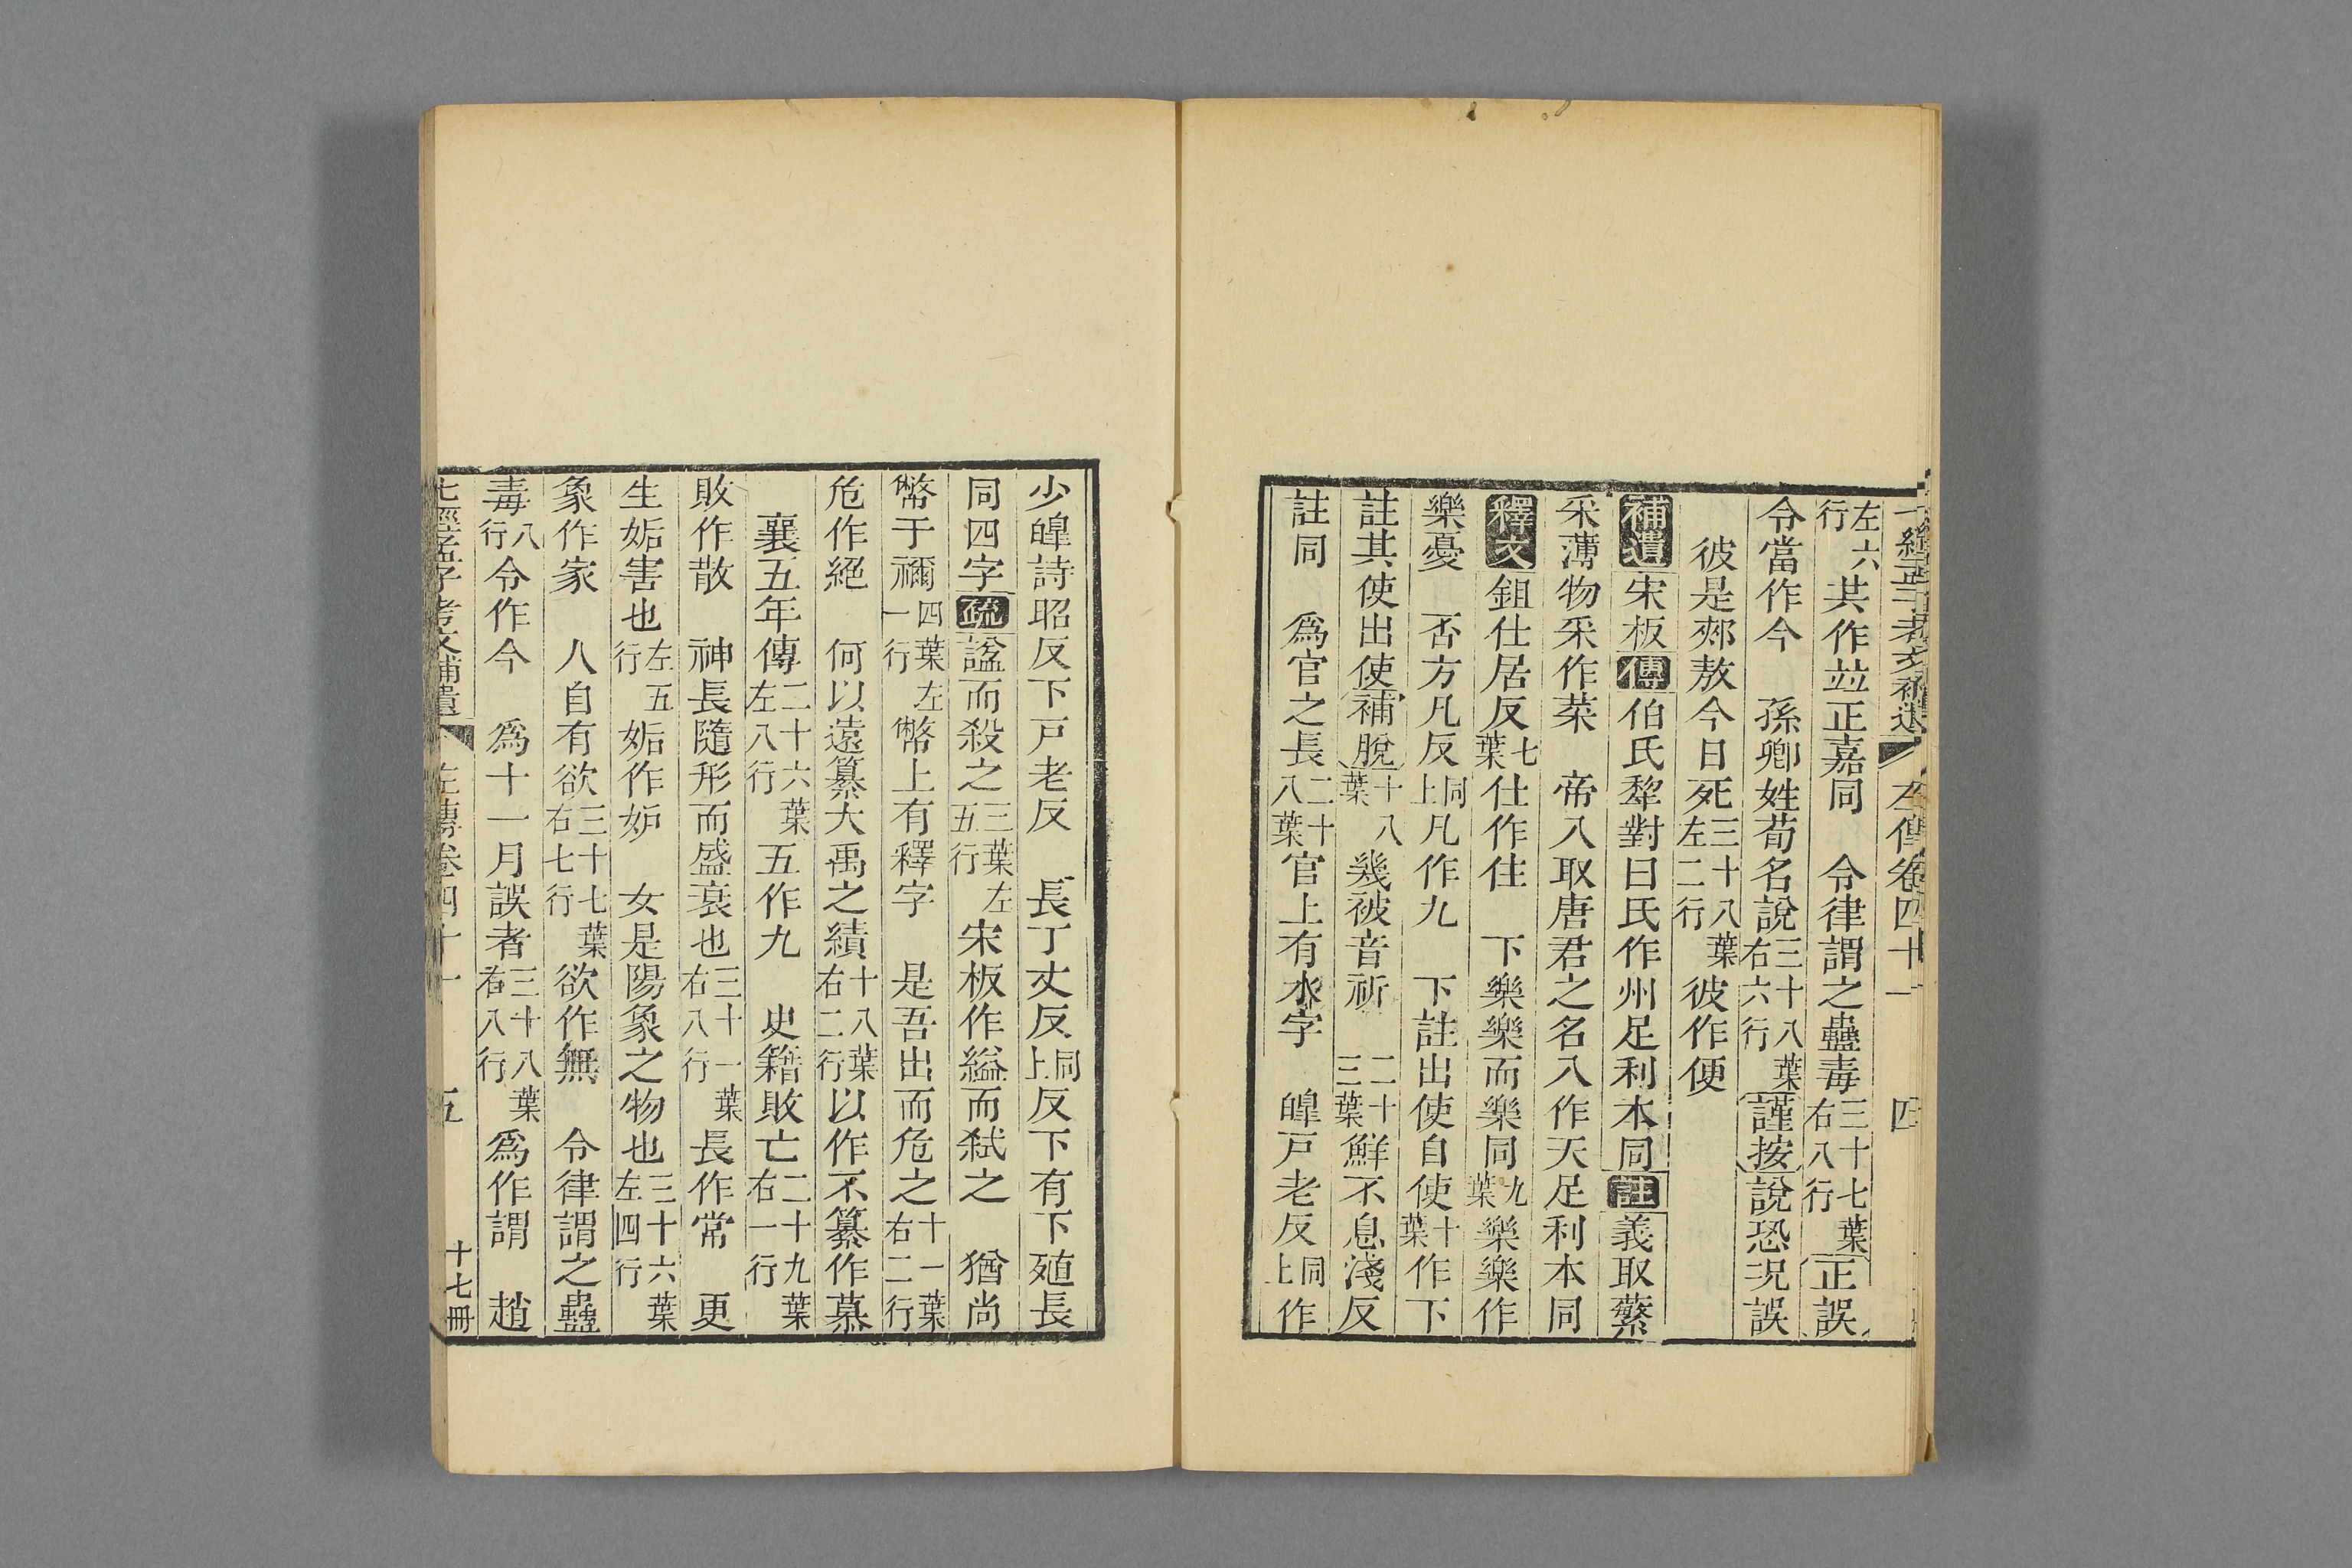 七經孟子考文補遺 左傳卷四十一 四
左六行其作竝正嘉同 令律謂之蠱毒三十七葉右八行正誤
令當作今 孫卿姓荀名說三十八葉右六行謹按說恐況誤
彼是郟敖今日死三十八葉左二行彼作便
補遺宋板傳伯氏犂對曰氏作州足利本同註義取蘩
采薄物采作菜 帝入取唐君之名入作天足利本同
釋文鉏仕居反七葉仕作住 下樂樂而樂同九葉樂樂作
樂憂 否方凡反同上凡作九 下註出使自使十葉作下
註其使出使補脫十八葉 幾被音祈 二十三葉鮮不息淺反
註同 爲官之長二十八葉官上有水字 皥戸老反同上作
少皥詩昭反下戸老反 長丁丈反同上反下有下殖長
同四字疏諡而殺之三葉左五行宋板作縊而弑之 猶尚
幣于禰四葉左一行幣上有釋字 是吾出而危之十一葉右二行
危作絕 何以遠纂大禹之績十八葉右二行以作不纂作慕
襄五年傳二十六葉左八行五作九 史籍敗亡二十九葉右一行
敗作散 神長隨形而盛衰也三十一葉右八行長作常 更
生妬害也左五行妬作妒 女是陽象之物也三十六葉左四行
象作家 人自有欲三十七葉右七行欲作無 令律謂之蠱
毒八行令作今 爲十一月誤者三十八葉右八行爲作謂 趙
七經孟子考文補遺 左傳卷四十一 五 十七冊